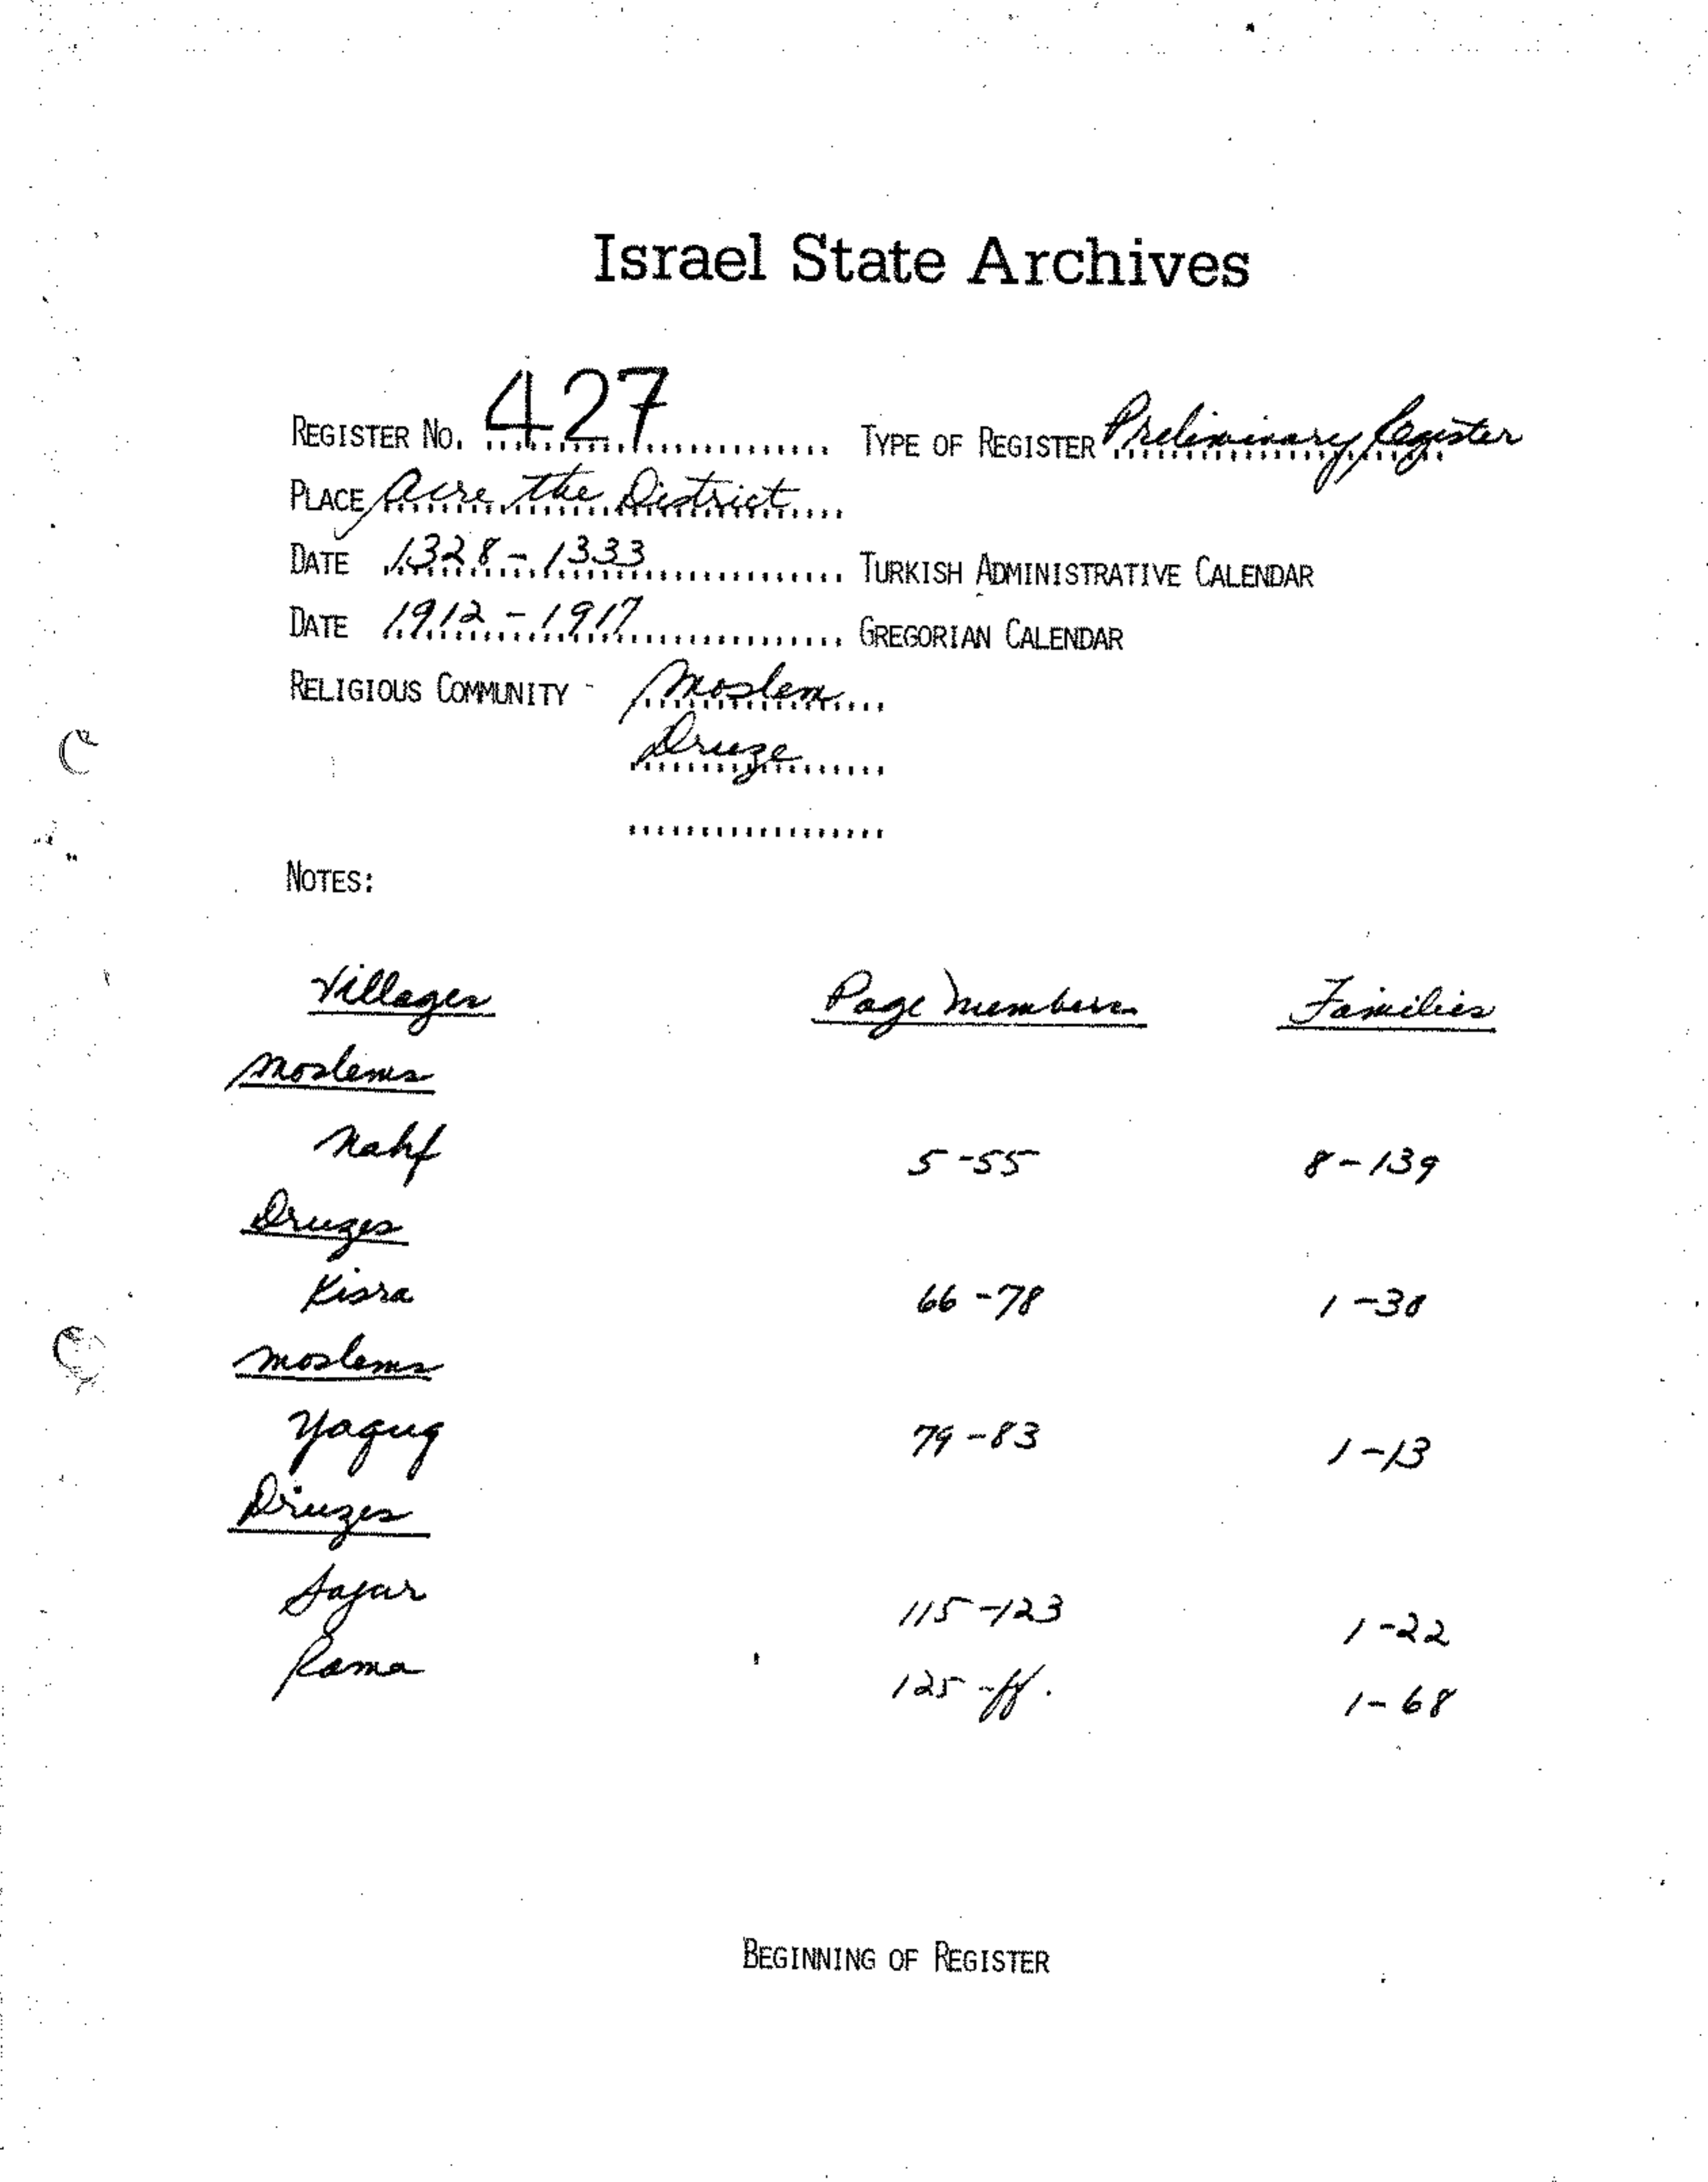 Israel State Archives
REGISTER NO. 427 TYPE OF REGISTER Preliminary Register
PLACE Acre the District
DATE 1328-1333 TURKISH ADMINISTRATIVE CALENDAR
DATE 1912-1917 GREGORIAN CALENDAR
RELIGIOUS COMMUNITY - Moslem
Druze
NOTES:
Villages Page Numbers Families
Moslems
Nahf 5-55 8-139
Druzes
Kisra 66-78 1-30
Moslems
Yaquq 79-83 1-13
Druzes
Sajur 115-123 1-22
Rama 125-ff. 1-68
BEGINNING OF REGISTER